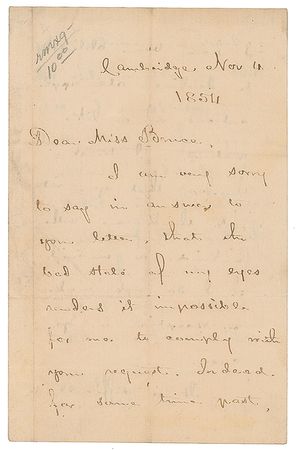 10 00
Cambridge, Nov 4
1854
Dear Miss Bruce,
I am very sorry
to say in answer to
your letter, that the
bad state of my eyes
renders it impossible
for me to comply with
your request. Indeed
for some time past,